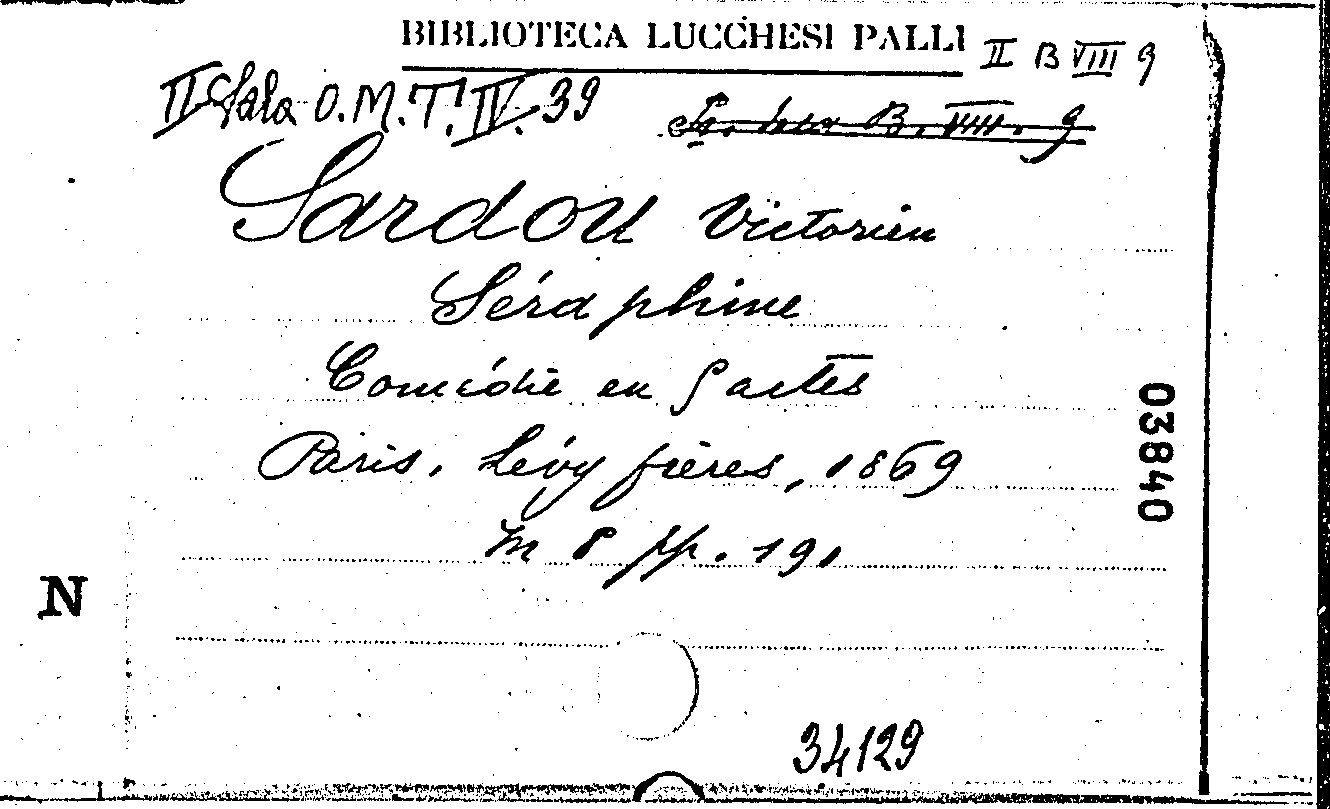 BIBLIOTECA LUCCHESI PALLI
II B VIII 9
II Sala O.M.T. IV. 39
B. VIII. 9
Sardou Victorien
Séraphine
Comédie en 5 actes
Paris, Lévy frères, 1869
in 8 pp. 191
03840
N
34129